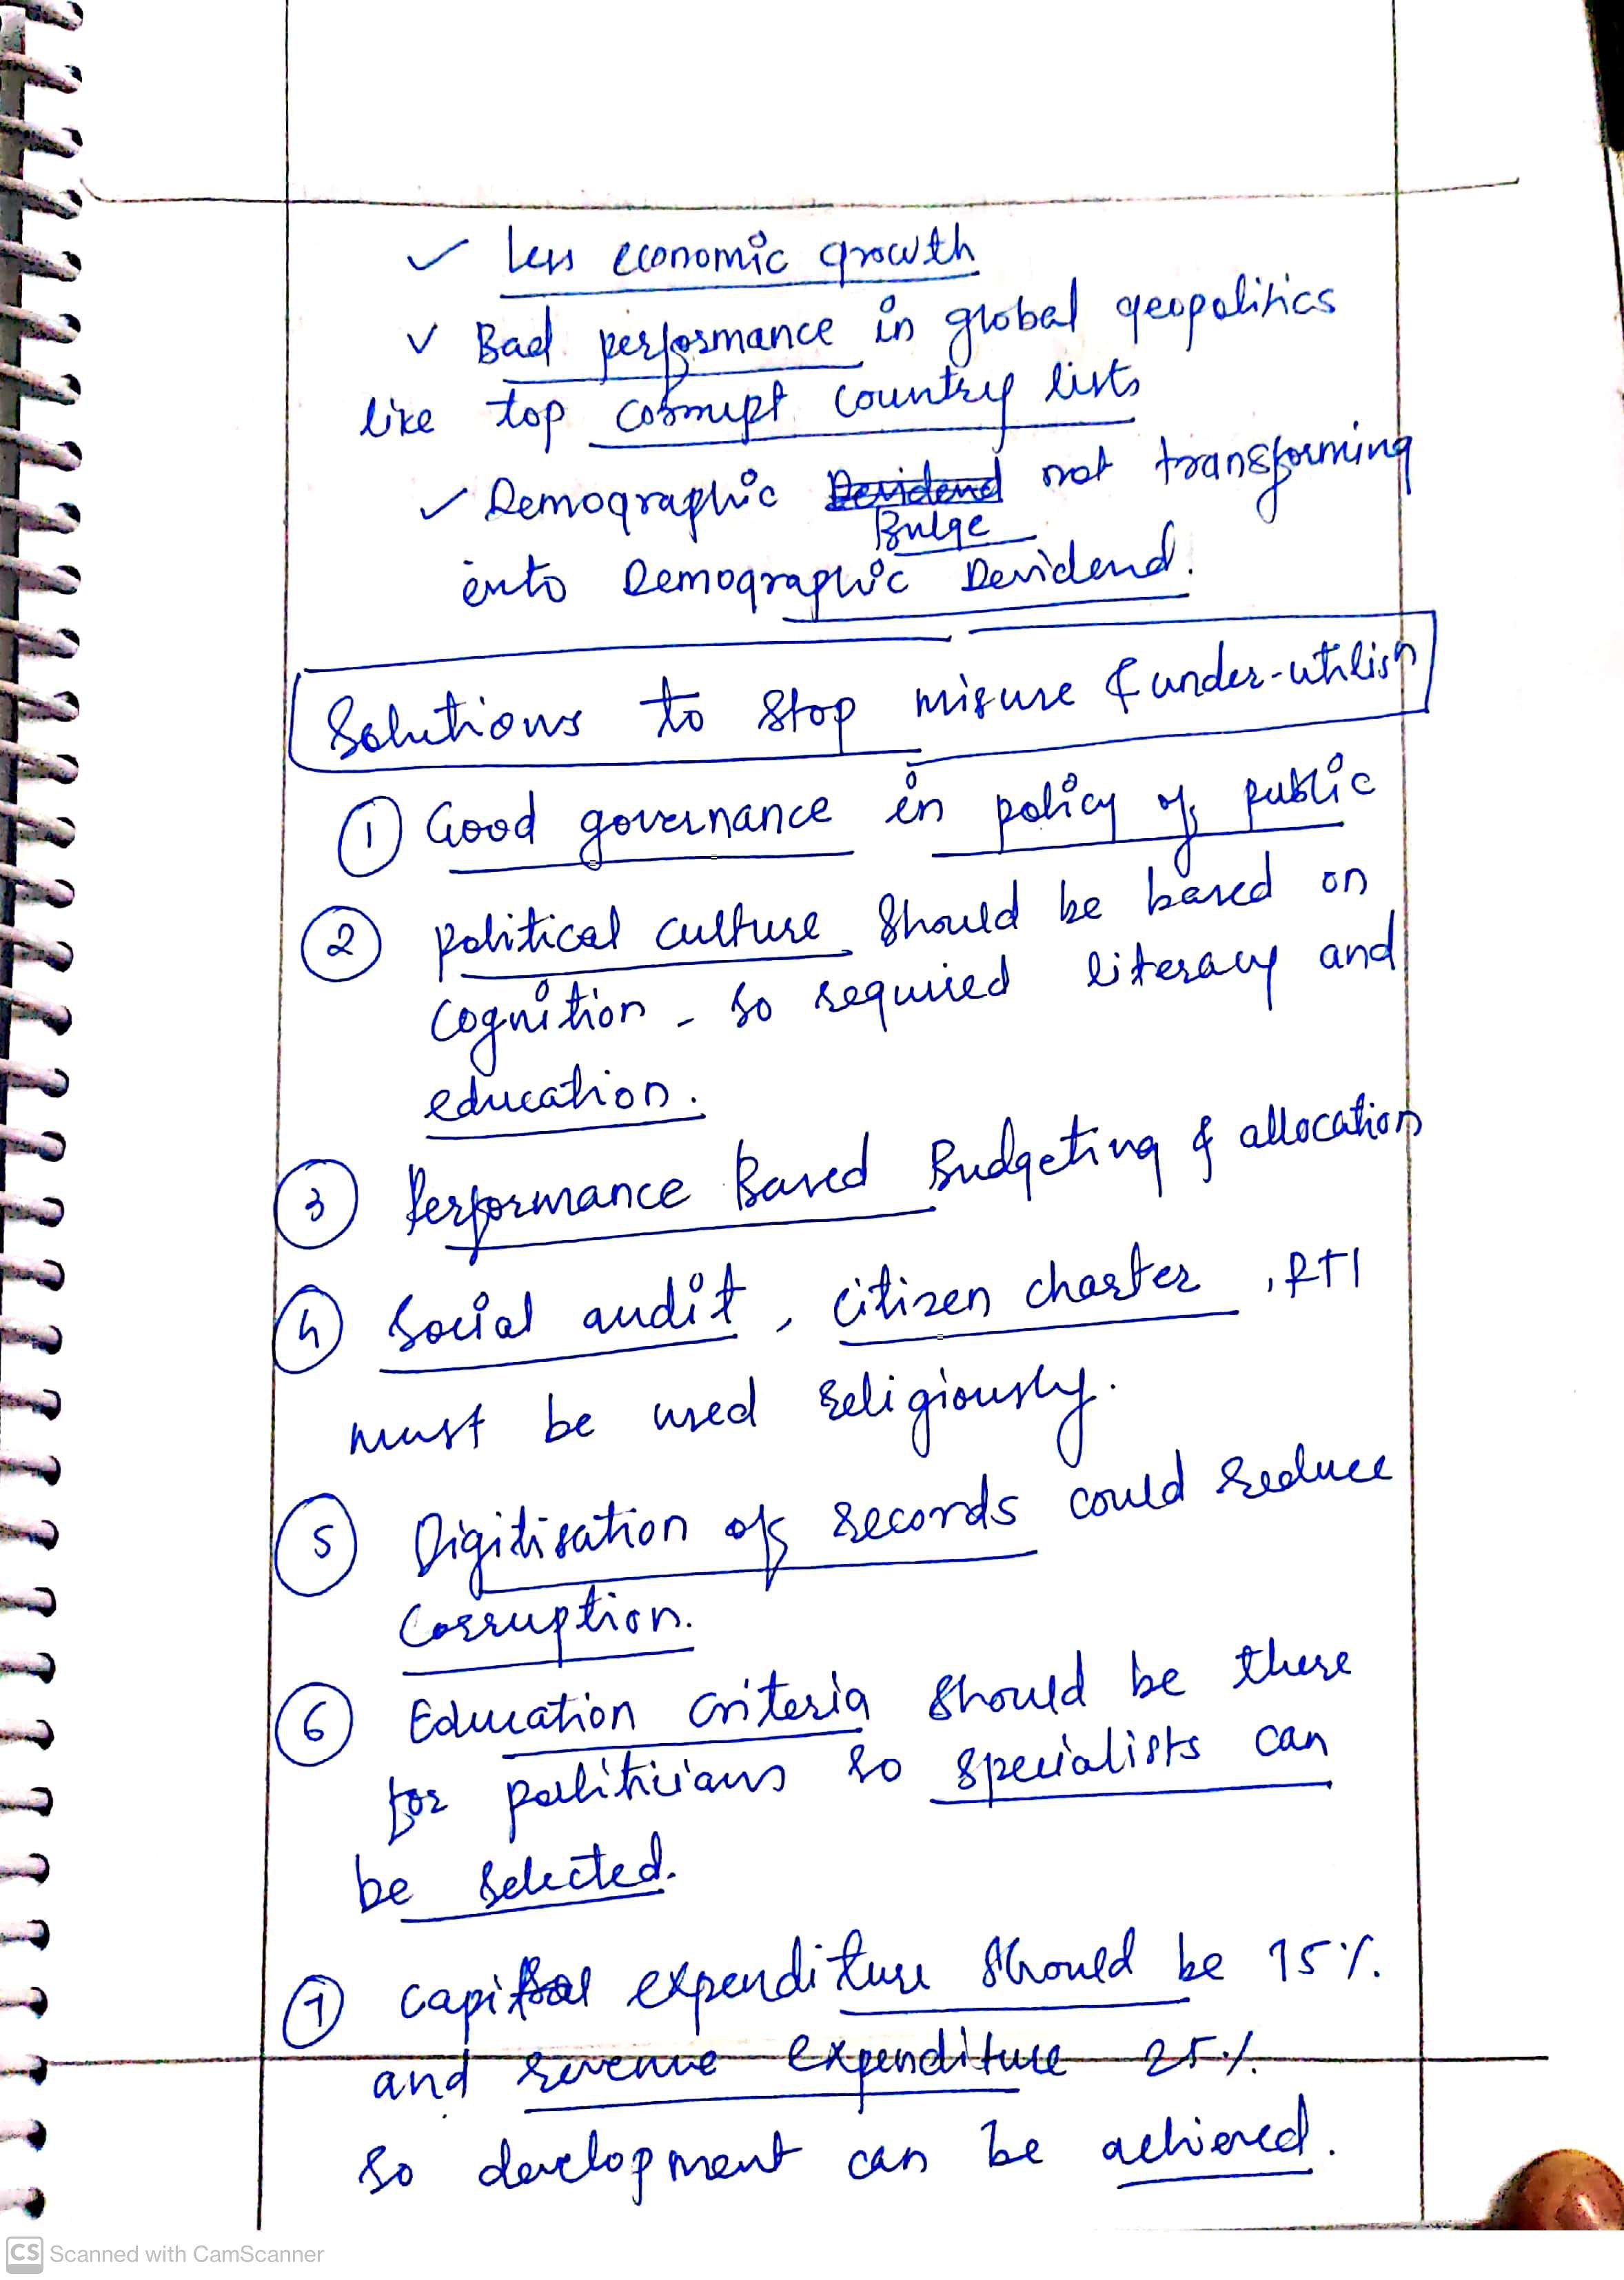 ✓ Less economic growth
✓ Bad performance in global geopolitics
like top corrupt country lists
✓ Demographic Devidend Bulge not transforming
into Demographic Devidend.
Solutions to stop misuse & under-utilisn
① Good governance in policy of public
② Political culture should be based on
cognition - so required literacy and
education.
③ Performance Based Budgeting & allocation
④ Social audit, citizen charter, RTI
must be used religiously.
⑤ Digitisation of records could reduce
corruption.
⑥ Education criteria should be there
for politicians so specialists can
be selected.
⑦ capital expenditure should be 75%.
and revenue expenditure 25%.
so development can be achieved.
CS Scanned with CamScanner